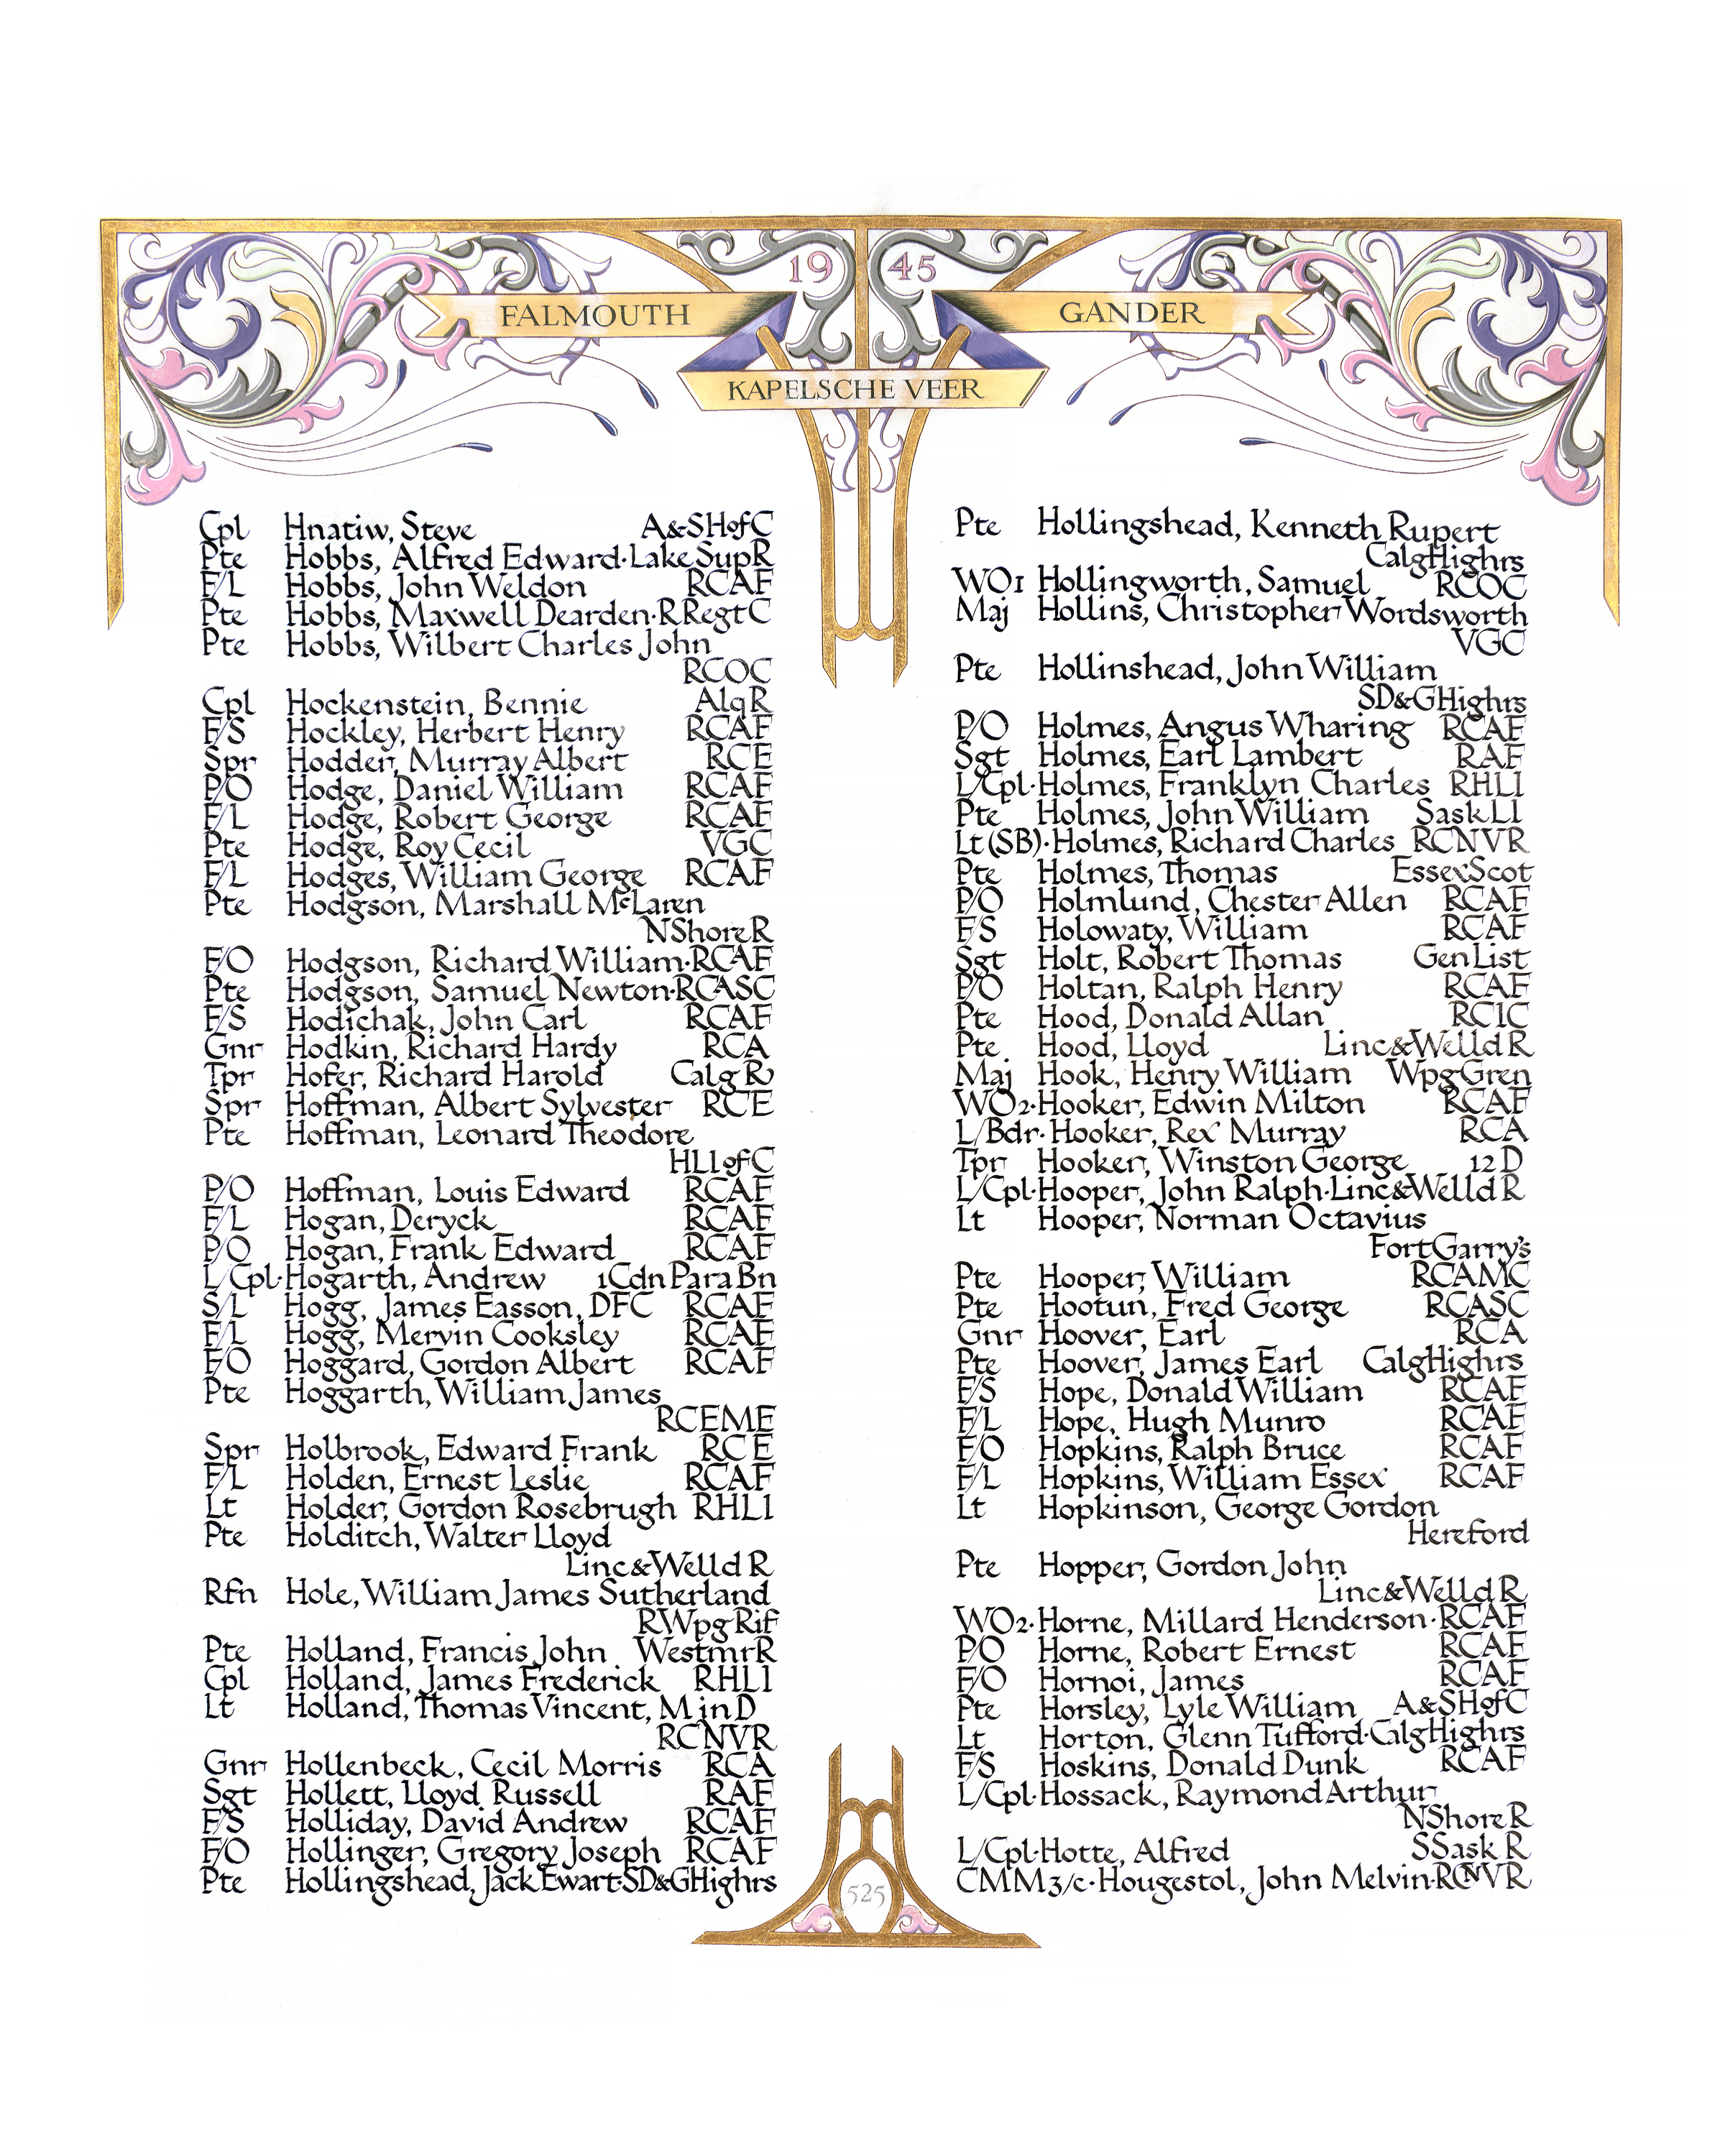 19 45
FALMOUTH
GANDER
KAPELSCHE VEER
Cpl Hnatiw, Steve A&SHofC
Pte Hobbs, Alfred Edward·LakeSupR
F/L Hobbs, John Weldon RCAF
Pte Hobbs, Maxwell Dearden·RRegtC
Pte Hobbs, Wilbert Charles John
RCOC
Cpl Hockenstein, Bennie AlqR
F/S Hockley, Herbert Henry RCAF
Spr Hodder, Murray Albert RCE
P/O Hodge, Daniel William RCAF
F/L Hodge, Robert George RCAF
Pte Hodge, Roy Cecil VGC
F/L Hodges, William George RCAF
Pte Hodgson, Marshall McLaren
NShoreR
F/O Hodgson, Richard William·RCAF
Pte Hodgson, Samuel Newton·RCASC
F/S Hodichak, John Carl RCAF
Gnr Hodkin, Richard Hardy RCA
Tpr Hofer, Richard Harold Calg R
Spr Hoffman, Albert Sylvester RCE
Pte Hoffman, Leonard Theodore
HLIofC
P/O Hoffman, Louis Edward RCAF
F/L Hogan, Deryck RCAF
P/O Hogan, Frank Edward RCAF
L/Cpl·Hogarth, Andrew 1CdnParaBn
S/L Hogg, James Easson, DFC RCAF
F/L Hogg, Mervin Cooksley RCAF
F/O Hoggard, Gordon Albert RCAF
Pte Hoggarth, William James
RCEME
Spr Holbrook, Edward Frank RCE
F/L Holden, Ernest Leslie RCAF
Lt Holder, Gordon Rosebrugh RHLI
Pte Holditch, Walter Lloyd
Linc&Welld R
Rfn Hole, William James Sutherland
RWpgRif
Pte Holland, Francis John WestmrR
Cpl Holland, James Frederick RHLI
Lt Holland, Thomas Vincent, M in D
RCNVR
Gnr Hollenbeck, Cecil Morris RCA
Sgt Hollett, Lloyd Russell RAF
F/S Holliday, David Andrew RCAF
F/O Hollinger, Gregory Joseph RCAF
Pte Hollingshead, Jack Ewart·SD&GHighrs
Pte Hollingshead, Kenneth Rupert
CalgHighrs
WO1 Hollingworth, Samuel RCOC
Maj Hollins, Christopher Wordsworth
VGC
Pte Hollinshead, John William
SD&GHighrs
P/O Holmes, Angus Wharing RCAF
Sgt Holmes, Earl Lambert RAF
L/Cpl·Holmes, Franklyn Charles RHLI
Pte Holmes, John William SaskLI
Lt(SB)·Holmes, Richard Charles RCNVR
Pte Holmes, Thomas EssexScot
P/O Holmlund, Chester Allen RCAF
F/S Holowaty, William RCAF
Sgt Holt, Robert Thomas GenList
P/O Holtan, Ralph Henry RCAF
Pte Hood, Donald Allan RCIC
Pte Hood, Lloyd Linc&Welld R
Maj Hook, Henry William WpgGren
WO2·Hooker, Edwin Milton RCAF
L/Bdr·Hooker, Rex Murray RCA
Tpr Hooker, Winston George 12 D
L/Cpl·Hooper, John Ralph·Linc&Welld R
Lt Hooper, Norman Octavius
FortGarry's
Pte Hooper, William RCAMC
Pte Hootun, Fred George RCASC
Gnr Hoover, Earl RCA
Pte Hoover, James Earl CalgHighrs
F/S Hope, Donald William RCAF
F/L Hope, Hugh Munro RCAF
F/O Hopkins, Ralph Bruce RCAF
F/L Hopkins, William Essex RCAF
Lt Hopkinson, George Gordon
Hereford
Pte Hopper, Gordon John
Linc&Welld R
WO2·Horne, Millard Henderson·RCAF
P/O Horne, Robert Ernest RCAF
F/O Hornoi, James RCAF
Pte Horsley, Lyle William A&SHofC
Lt Horton, Glenn Tufford·CalgHighrs
F/S Hoskins, Donald Dunk RCAF
L/Cpl·Hossack, Raymond Arthur
NShoreR
L/Cpl·Hotte, Alfred SSask R
CMM3/c·Hougestol, John Melvin·RCNVR
525